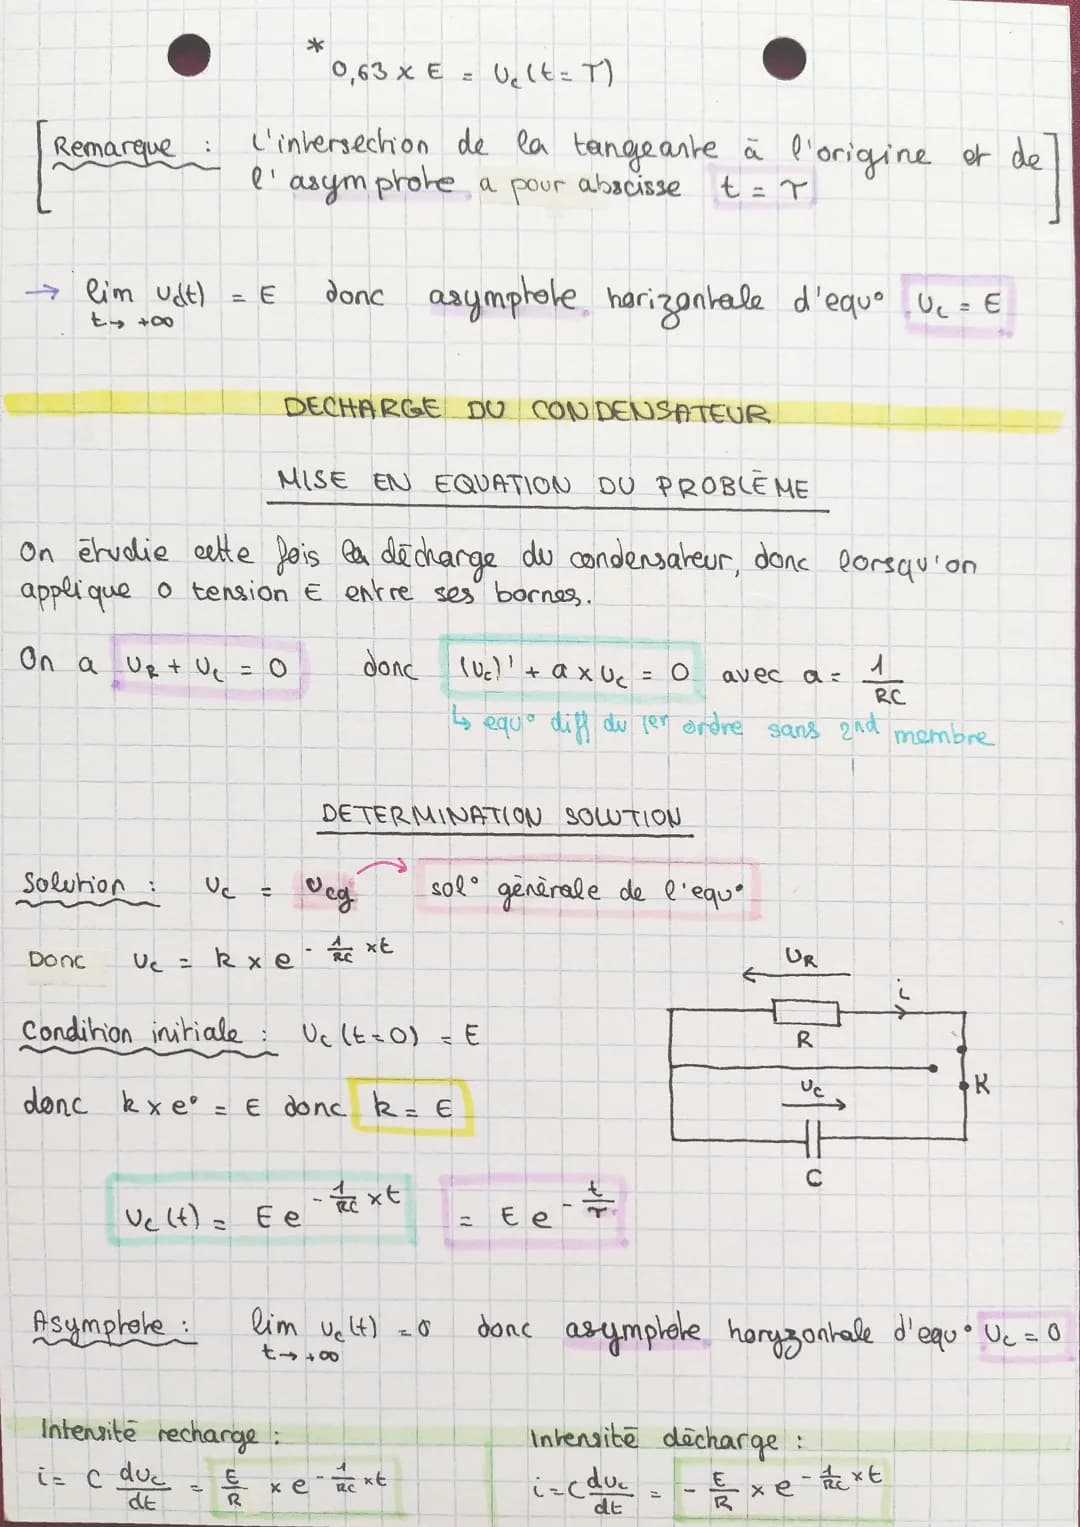 *
0,63 x E = Uc(t=τ)
Remarque : L'intersection de la tangeante à l'origine et de
l'asymptote a pour abscisse t = τ
→ lim Uc(t) = E donc asymptote horizontale d'equ° Uc = E
t→ +∞
DECHARGE DU CONDENSATEUR
MISE EN EQUATION DU PROBLÈME
On étudie cette fois la décharge du condensateur, donc lorsqu'on
applique 0 tension E entre ses bornes.
On a UR + Uc = 0 donc (Uc)' + a x Uc = 0 avec a = 1/RC
↳ equ° diff du 1er ordre sans 2nd membre
DETERMINATION SOLUTION
Solution : Uc = Ucg → sol° générale de l'equ°
Donc Uc = k x e^(- 1/RC xt)
Condition initiale : Uc (t=0) = E
donc k x e° = E donc k = E
UR
i
R
Uc
K
C
Uc (t) = E e^(- 1/RC xt) = E e^(- t/τ)
Asymptote : lim Uc(t) = 0 donc asymptote horyzontale d'equ° Uc = 0
t→ +∞
Intensité recharge :
i = C duc/dt = E/R x e^(- 1/RC xt)
Intensité décharge :
i = C duc/dt = - E/R x e^(- 1/RC xt)